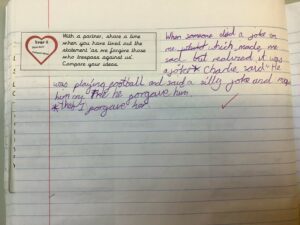 With a partner, share a time
when you have lived out the
statement 'as we forgive those
who trespass against us'.
Compare your ideas.
When someone did a joke on
me which made me
sad but realized it was
a joke * Charlie said "He
was playing football and said a silly joke and
him he forgave him
* then I forgave her